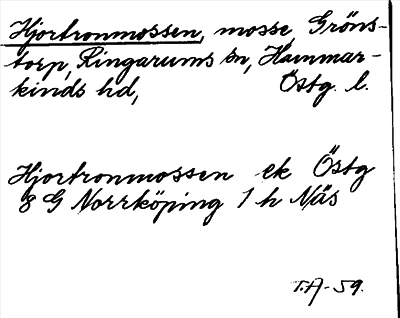 Hjortronmossen, mosse, Gröns-
torp, Ringarums sn, Hammar-
kinds hd, Östg. l.
Hjortronmossen ek Östg
8 G Norrköping 1 h Näs
T.A-59.